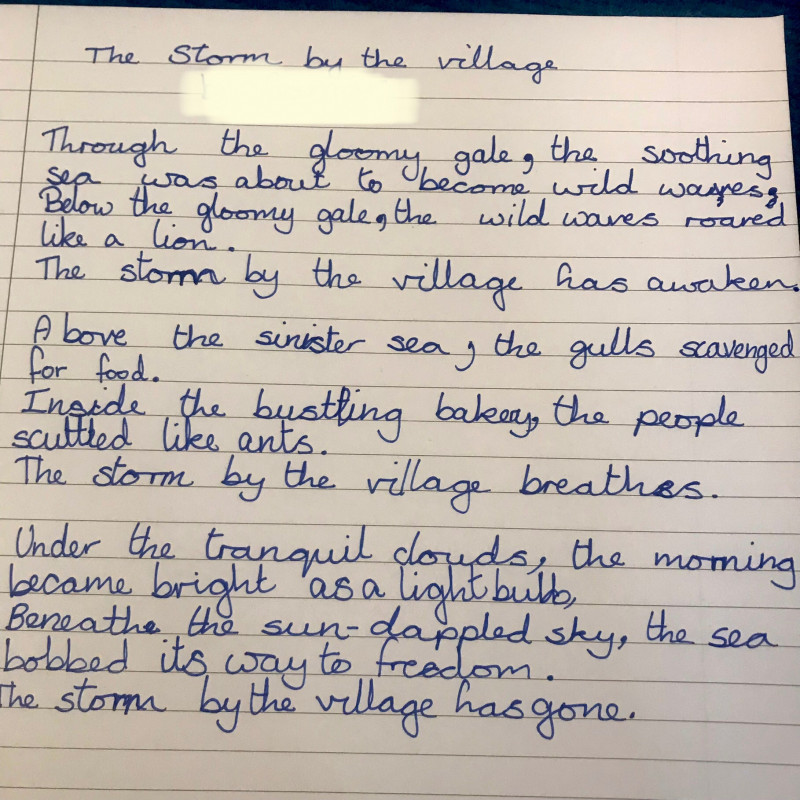 The Storm by the village
Through the gloomy gale, the soothing
sea was about to become wild waves,
Below the gloomy gale, the wild waves roared
like a lion.
The storm by the village has awaken.
Above the sinister sea, the gulls scavenged
for food.
Inside the bustling bakery, the people
scuttled like ants.
The storm by the village breathes.
Under the tranquil clouds, the morning
became bright as a light bulb,
Beneathe the sun-dappled sky, the sea
bobbed its way to freedom.
The storm by the village has gone.